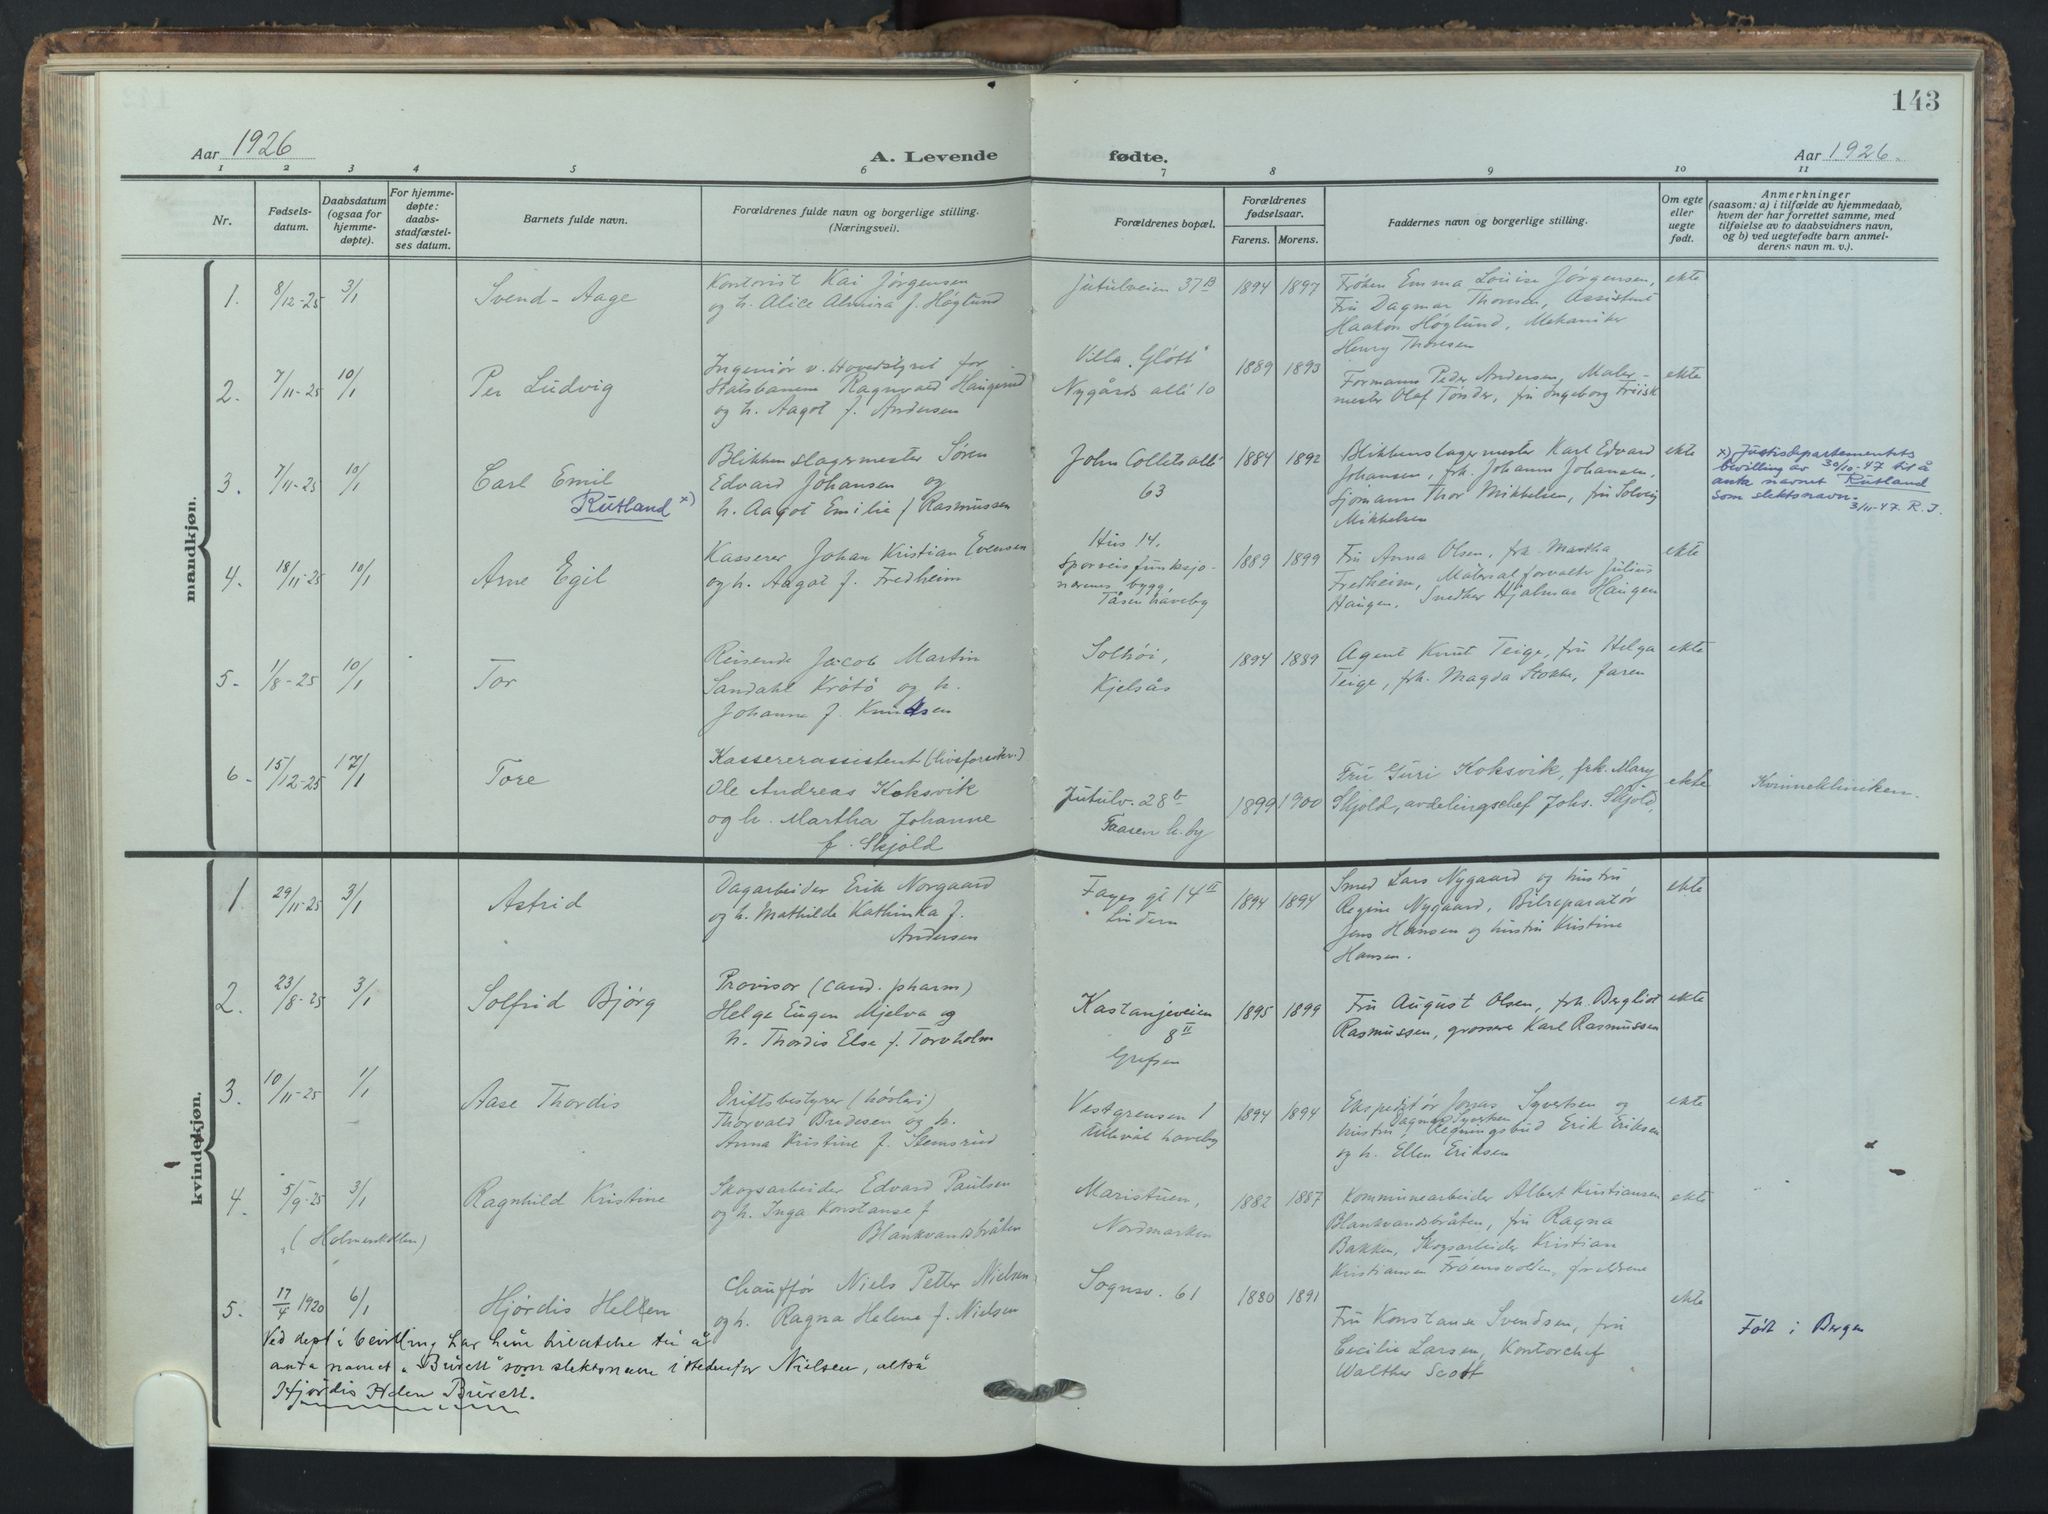 143
Aar 1926
A. Levende
fødte.
Aar 1926.
1 2 3 4 5 6 7 8 9 10 11
Nr.
Fødsels-
datum.
Daabsdatum
(ogsaa for
hjemme-
døpte).
For hjemme-
døpte:
daabs-
stadfæstel-
ses datum.
Barnets fulde navn.
Forældrenes fulde navn og borgerlige stilling.
(Næringsvei).
Forældrenes bopæl.
Forældrenes
fødselsaar.
Farens. Morens.
Faddernes navn og borgerlige stilling.
Om egte
eller
uegte
født.
Anmerkninger
(saasom: a) i tilfælde av hjemmedaab,
hvem der har forrettet samme, med
tilføielse av to daabsvidners navn,
og b) ved uegtefødte barn anmel-
derens navn m. v.).
mandkjøn.
1. 8/12-25 3/1
Svend-Aage
Kontorist Kai Jørgensen
og h. Alice Almira f. Høglund
Jutulveien 37B
1894 1897
Frøken Emma Louise Jørgensen,
Fru Dagmar Thoresen, Assistent
Haakon Høglund, Mekaniker
Henry Thoresen
ekte
2. 7/11-25 10/1
Per Ludvig
Ingeniør v. Hovedstyret for
Statsbanene Ragnvald Haugerud
og h. Aagot f. Andersen
Villa "Gløtt"
Nygårds allé 10
1889 1893
Formann Peder Andersen, Maler-
mester Olaf Tønder, fru Ingeborg Friisk
ekte
3. 7/11-25 10/1
Carl Emil
Rutland x)
Blikkenslagermester Søren
Edvard Johansen og
h. Aagot Emilie f Rasmussen
John Collets allé
63
1884 1892
Blikkenslagermester Karl Edvard
Johansen, frk. Johanne Johansen,
sjømann Thor Mikkelsen, fru Solveig
Mikkelsen
ekte
x) Justisdepartementets
bevilling av 30/10-47 til å
anta navnet Rutland
som slektsnavn.
3/11-47. R. J.
4. 18/11-25 10/1
Arne Egil
Kasserer Johan Kristian Evensen
og h. Aagot f. Fredheim
Hus 14,
Sporveisfunksjo-
nærenes bygg,
Tåsen haveby
1889 1899
Fru Anna Olsen, frk. Martha
Fredheim, Materialforvalter Julius
Haugen, Snedker Hjalmar Haugen
ekte
5. 1/8-25 10/1
Tor
Reisende Jacob Martin
Sandahl Krøtø og h.
Johanne f. Knudsen
Solhøi,
Kjelsås
1894 1889
Agent Knut Teige, fru Helga
Teige, frk. Magda Stokke, faren
ekte
6. 15/12-25 17/1
Tore
Kassererassistent (livsforsikr.)
Ole Andreas Koksvik
og h. Martha Johanne
f. Skjold
Jutulv. 28b
Taasen h.by
1899 1900
Fru Guri Koksvik, frk. Mary
Skjold, avdelingschef Johs. Skjold,
ekte
Kvinneklinikken.
kvindekjøn.
1 29/11-25 3/1
Astrid
Dagarbeider Erik Norgaard
og h. Mathilde Kathinka f.
Andersen
Fayes gt 14II
Lindern
1894 1894
Smed Lars Nygaard og hustru
Regine Nygaard, Bilreparatør
Jens Hansen og hustru Kristine
Hansen.
ekte
2. 23/8-25 3/1
Solfrid Bjørg
Provisor (cand. pharm)
Helge Eugen Mjelva og
h. Thordis Else f. Torvholm
Kastanjeveien
8II
Grefsen
1895 1899
Fru August Olsen, frk. Bergliot
Rasmussen, grosserer Karl Rasmussen
ekte
3. 10/11-25 1/1
Aase Thordis
Driftsbestyrer
Thorvald Bredesen og h.
Anna Kristine f. Stemsrud
Vestgrensen 1
Ullevål haveby
1894 1894
Ekspeditør Jonas Syvertsen og
hustru Dagmar Syvertsen, Regningsbud Erik Eriksen
og h. Ellen Eriksen
ekte
4. 5/9-25 3/1
(Holmenkollen)
Ragnhild Kristine
Skogsarbeider Edvard Paulsen
og h. Inga Konstanse f
Blankvandsbråten
Maristuen,
Nordmarken
1882 1887
Kommunearbeider Albert Kristiansen
Blankvandsbråten, fru Ragna
Bakken, Skogsarbeider Kristian
Kristiansen Frøensvolden, foreldrene
ekte
5. 17/4 1920 6/1
Hjørdis Helen
Chauffør Niels Petter Nielsen
og h. Ragna Helene f. Nielsen
Sognsv. 61
1880 1891
Fru Konstanse Svendsen, fru
Cecilie Larsen, Kontorchef
Walther Scott
ekte
Født i Bergen
Ved dept's bevilling har hun tillatelse til å
anta navnet "Burett" som slektsnavn istedenfor Nielsen, altså
Hjørdis Helen Burett.